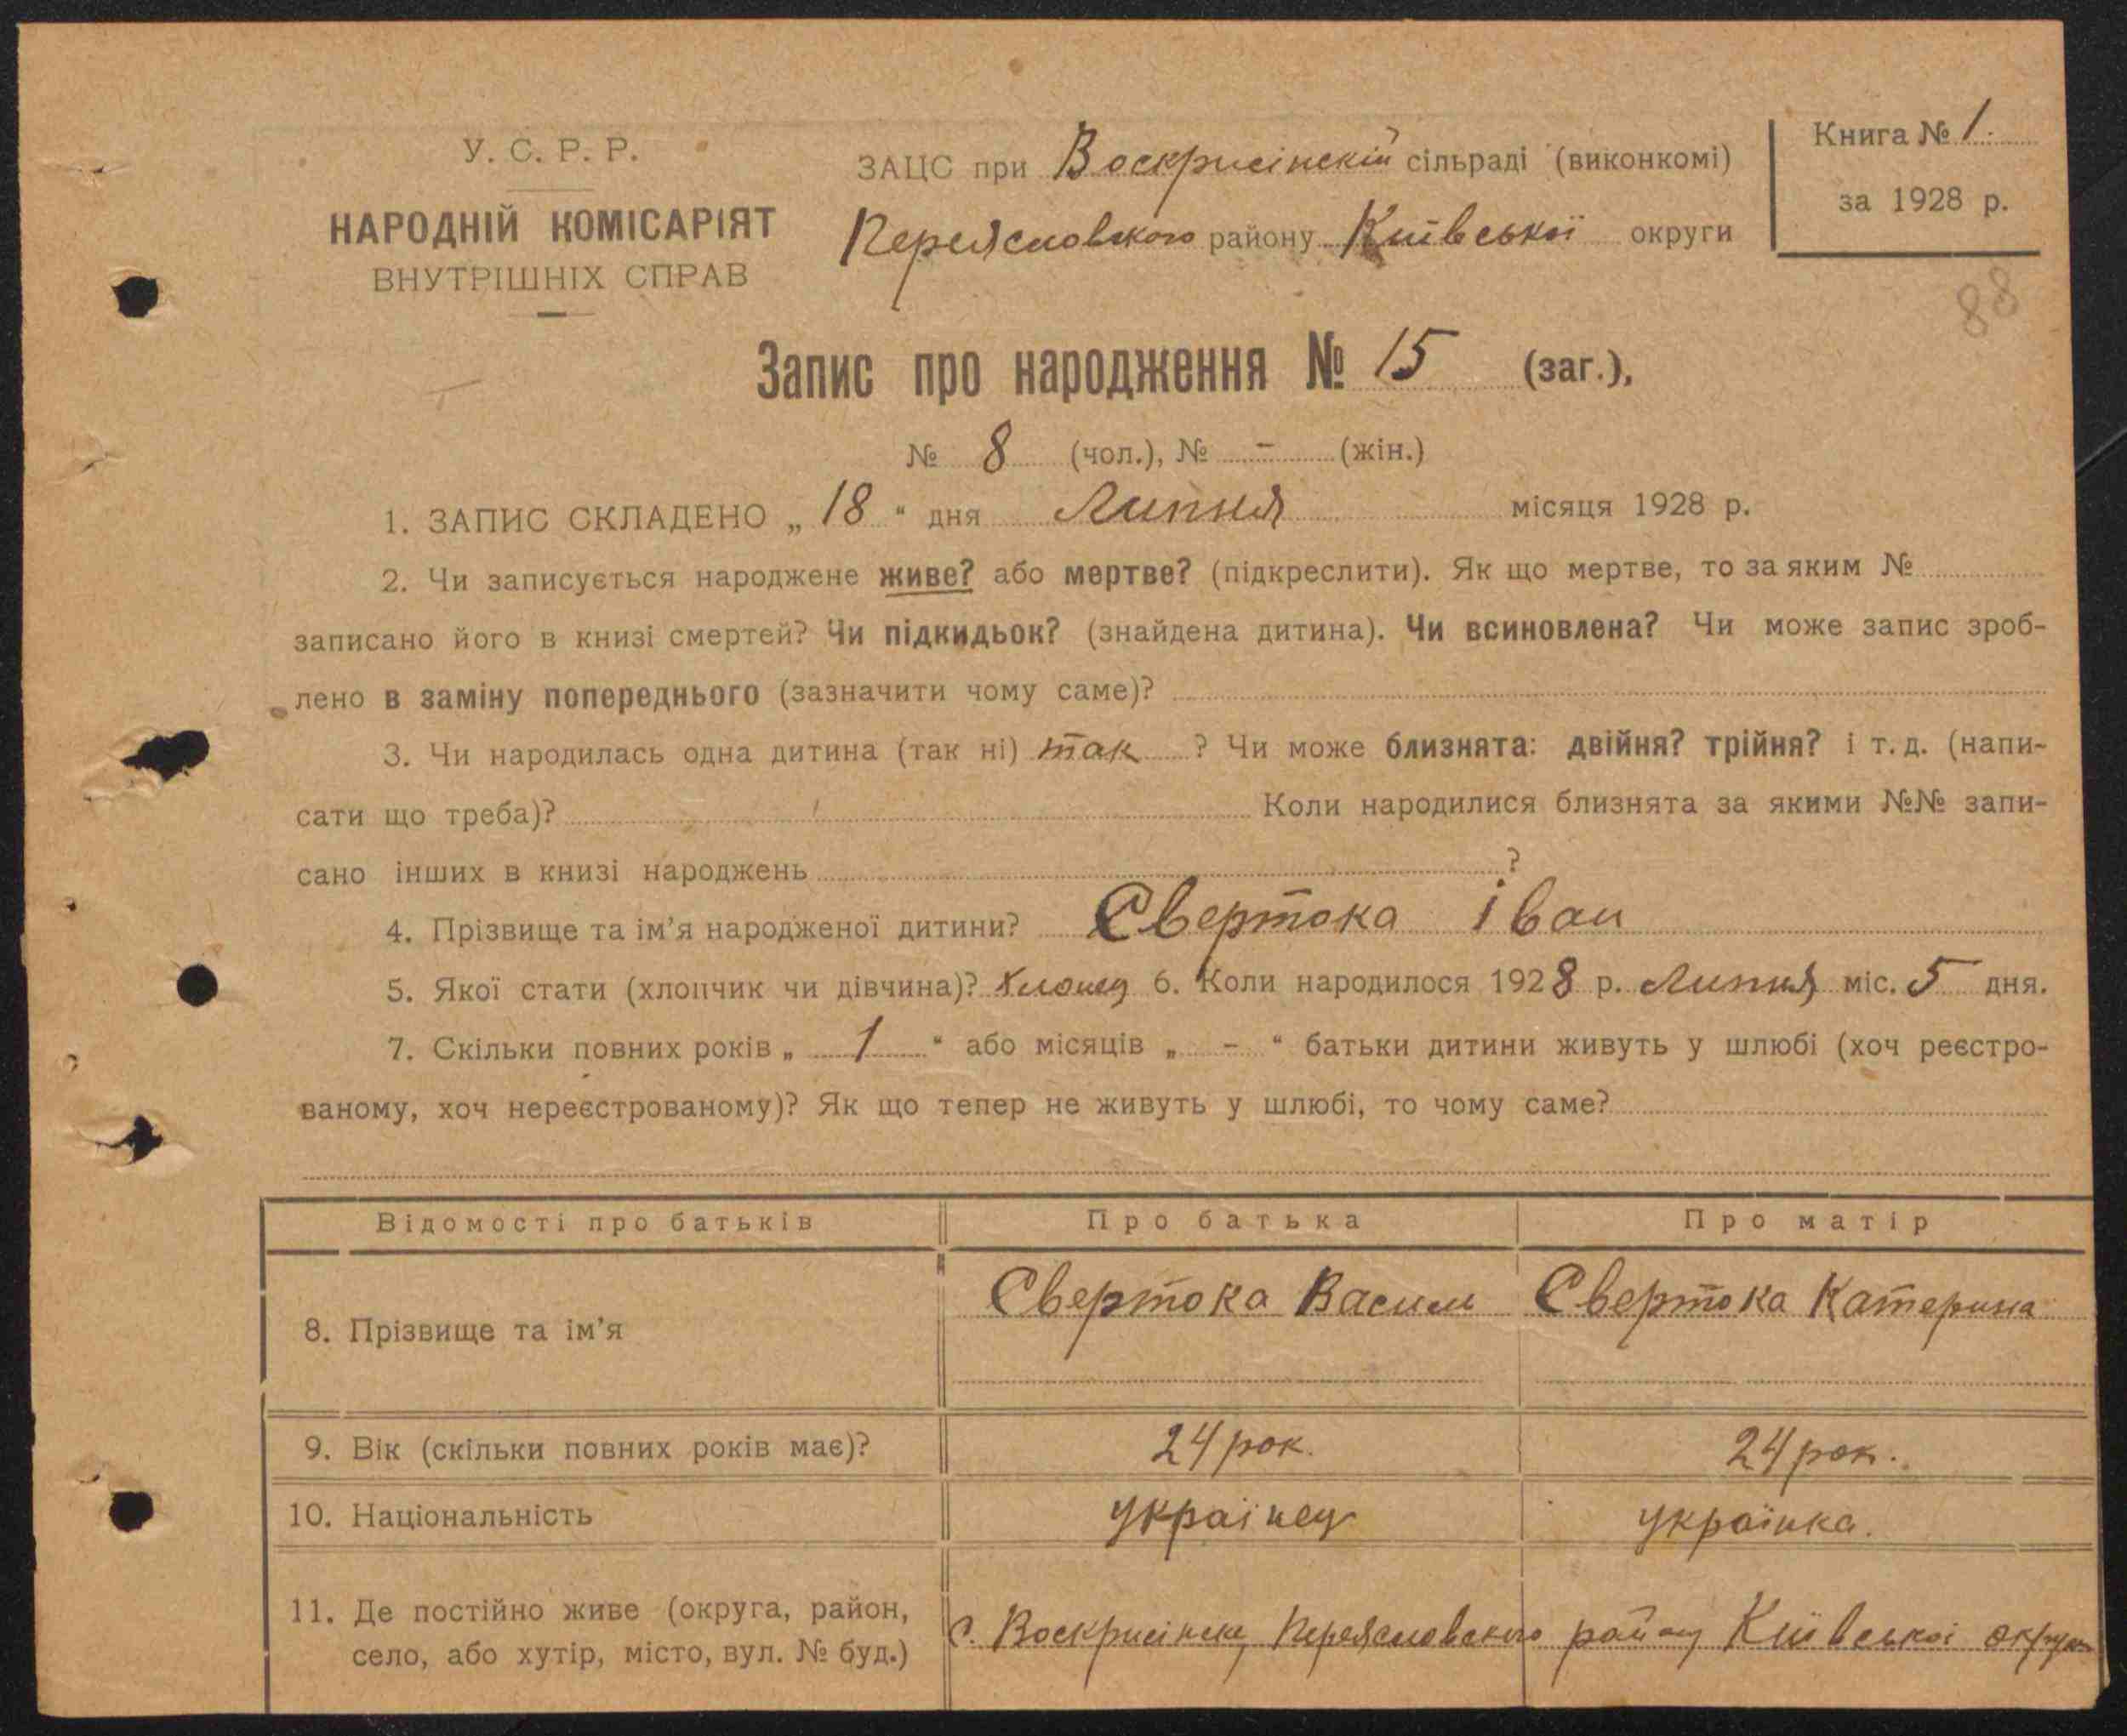 У. С. Р. Р.
НАРОДНІЙ КОМІСАРІЯТ
ВНУТРІШНІХ СПРАВ
ЗАЦС при Воскрисінскій сільраді (виконкомі)
Переясловского району Київської округи
Книга № 1.
за 1928 р.
88
Запис про народження № 15 (заг.),
№ 8 (чол.), № - (жін.)
1. ЗАПИС СКЛАДЕНО „ 18 “ дня Липня місяця 1928 р.
2. Чи записується народжене живе? або мертве? (підкреслити). Як що мертве, то за яким №
записано його в книзі смертей? Чи підкидьок? (знайдена дитина). Чи всиновлена? Чи може запис зроб-
лено в заміну попереднього (зазначити чому саме)?
3. Чи народилась одна дитина (так ні) так ? Чи може близнята: двійня? трійня? і т. д. (напи-
сати що треба)? Коли народилися близнята за якими №№ запи-
сано інших в книзі народжень ?
4. Прізвище та ім’я народженої дитини? Свертока Іван
5. Якої стати (хлопчик чи дівчина)? Хлопец 6. Коли народилося 1928 р. Липня міс. 5 дня.
7. Скільки повних років „ 1 “ або місяців „ - “ батьки дитини живуть у шлюбі (хоч реєстро-
ваному, хоч нереєстрованому)? Як що тепер не живуть у шлюбі, то чому саме?
Відомості про батьків Про батька Про матір
8. Прізвище та ім’я Свертока Васил Свертока Катерина
9. Вік (скільки повних років має)? 24 рок. 24 рок.
10. Національність українец українка.
11. Де постійно живе (округа, район,
село, або хутір, місто, вул. № буд.)
с. Переясловского району Київської округи